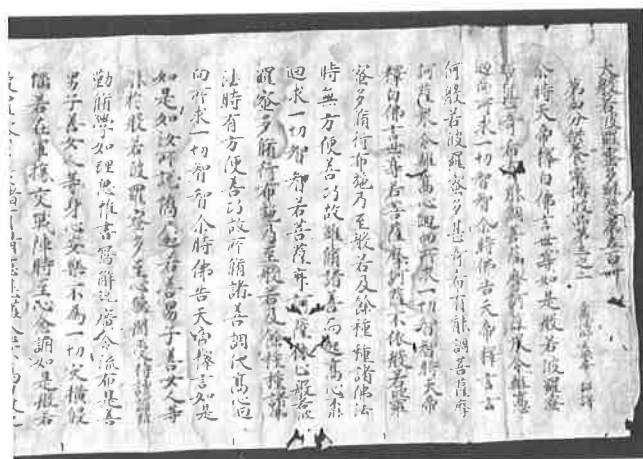 大般若波羅蜜多經卷第五百卅
第四分供養窣堵波品第三之二
三藏法師玄奘奉 詔譯
尒時天帝釋白佛言世尊如是般若波羅蜜
多甚奇希有能調菩薩摩訶薩衆令離高心
迴向所求一切智智尒時佛告天帝釋言云
何般若波羅蜜多甚奇希有能調菩薩摩
訶薩衆令離高心迴向所求一切智智天帝
釋白佛言世尊若菩薩摩訶薩不依般若波羅
蜜多脩行布施乃至般若及餘種種諸佛法
時無方便善巧故雖脩諸善而起高心不
迴求一切智智若菩薩摩訶薩依止般若波
羅蜜多脩行布施乃至般若及餘種種諸佛
法時有方便善巧故所脩諸善調伏高心迴
向所求一切智智尒時佛告天帝釋言如是
如是如汝所説憍尸迦若善男子善女人等
於般若波羅蜜多至心聽聞受持讀誦
勤脩學如理思惟書寫解説廣令流布是善
男子善女人等身心安樂不為一切灾橫
惱若在軍旅交戰陣時至心念誦如是般若